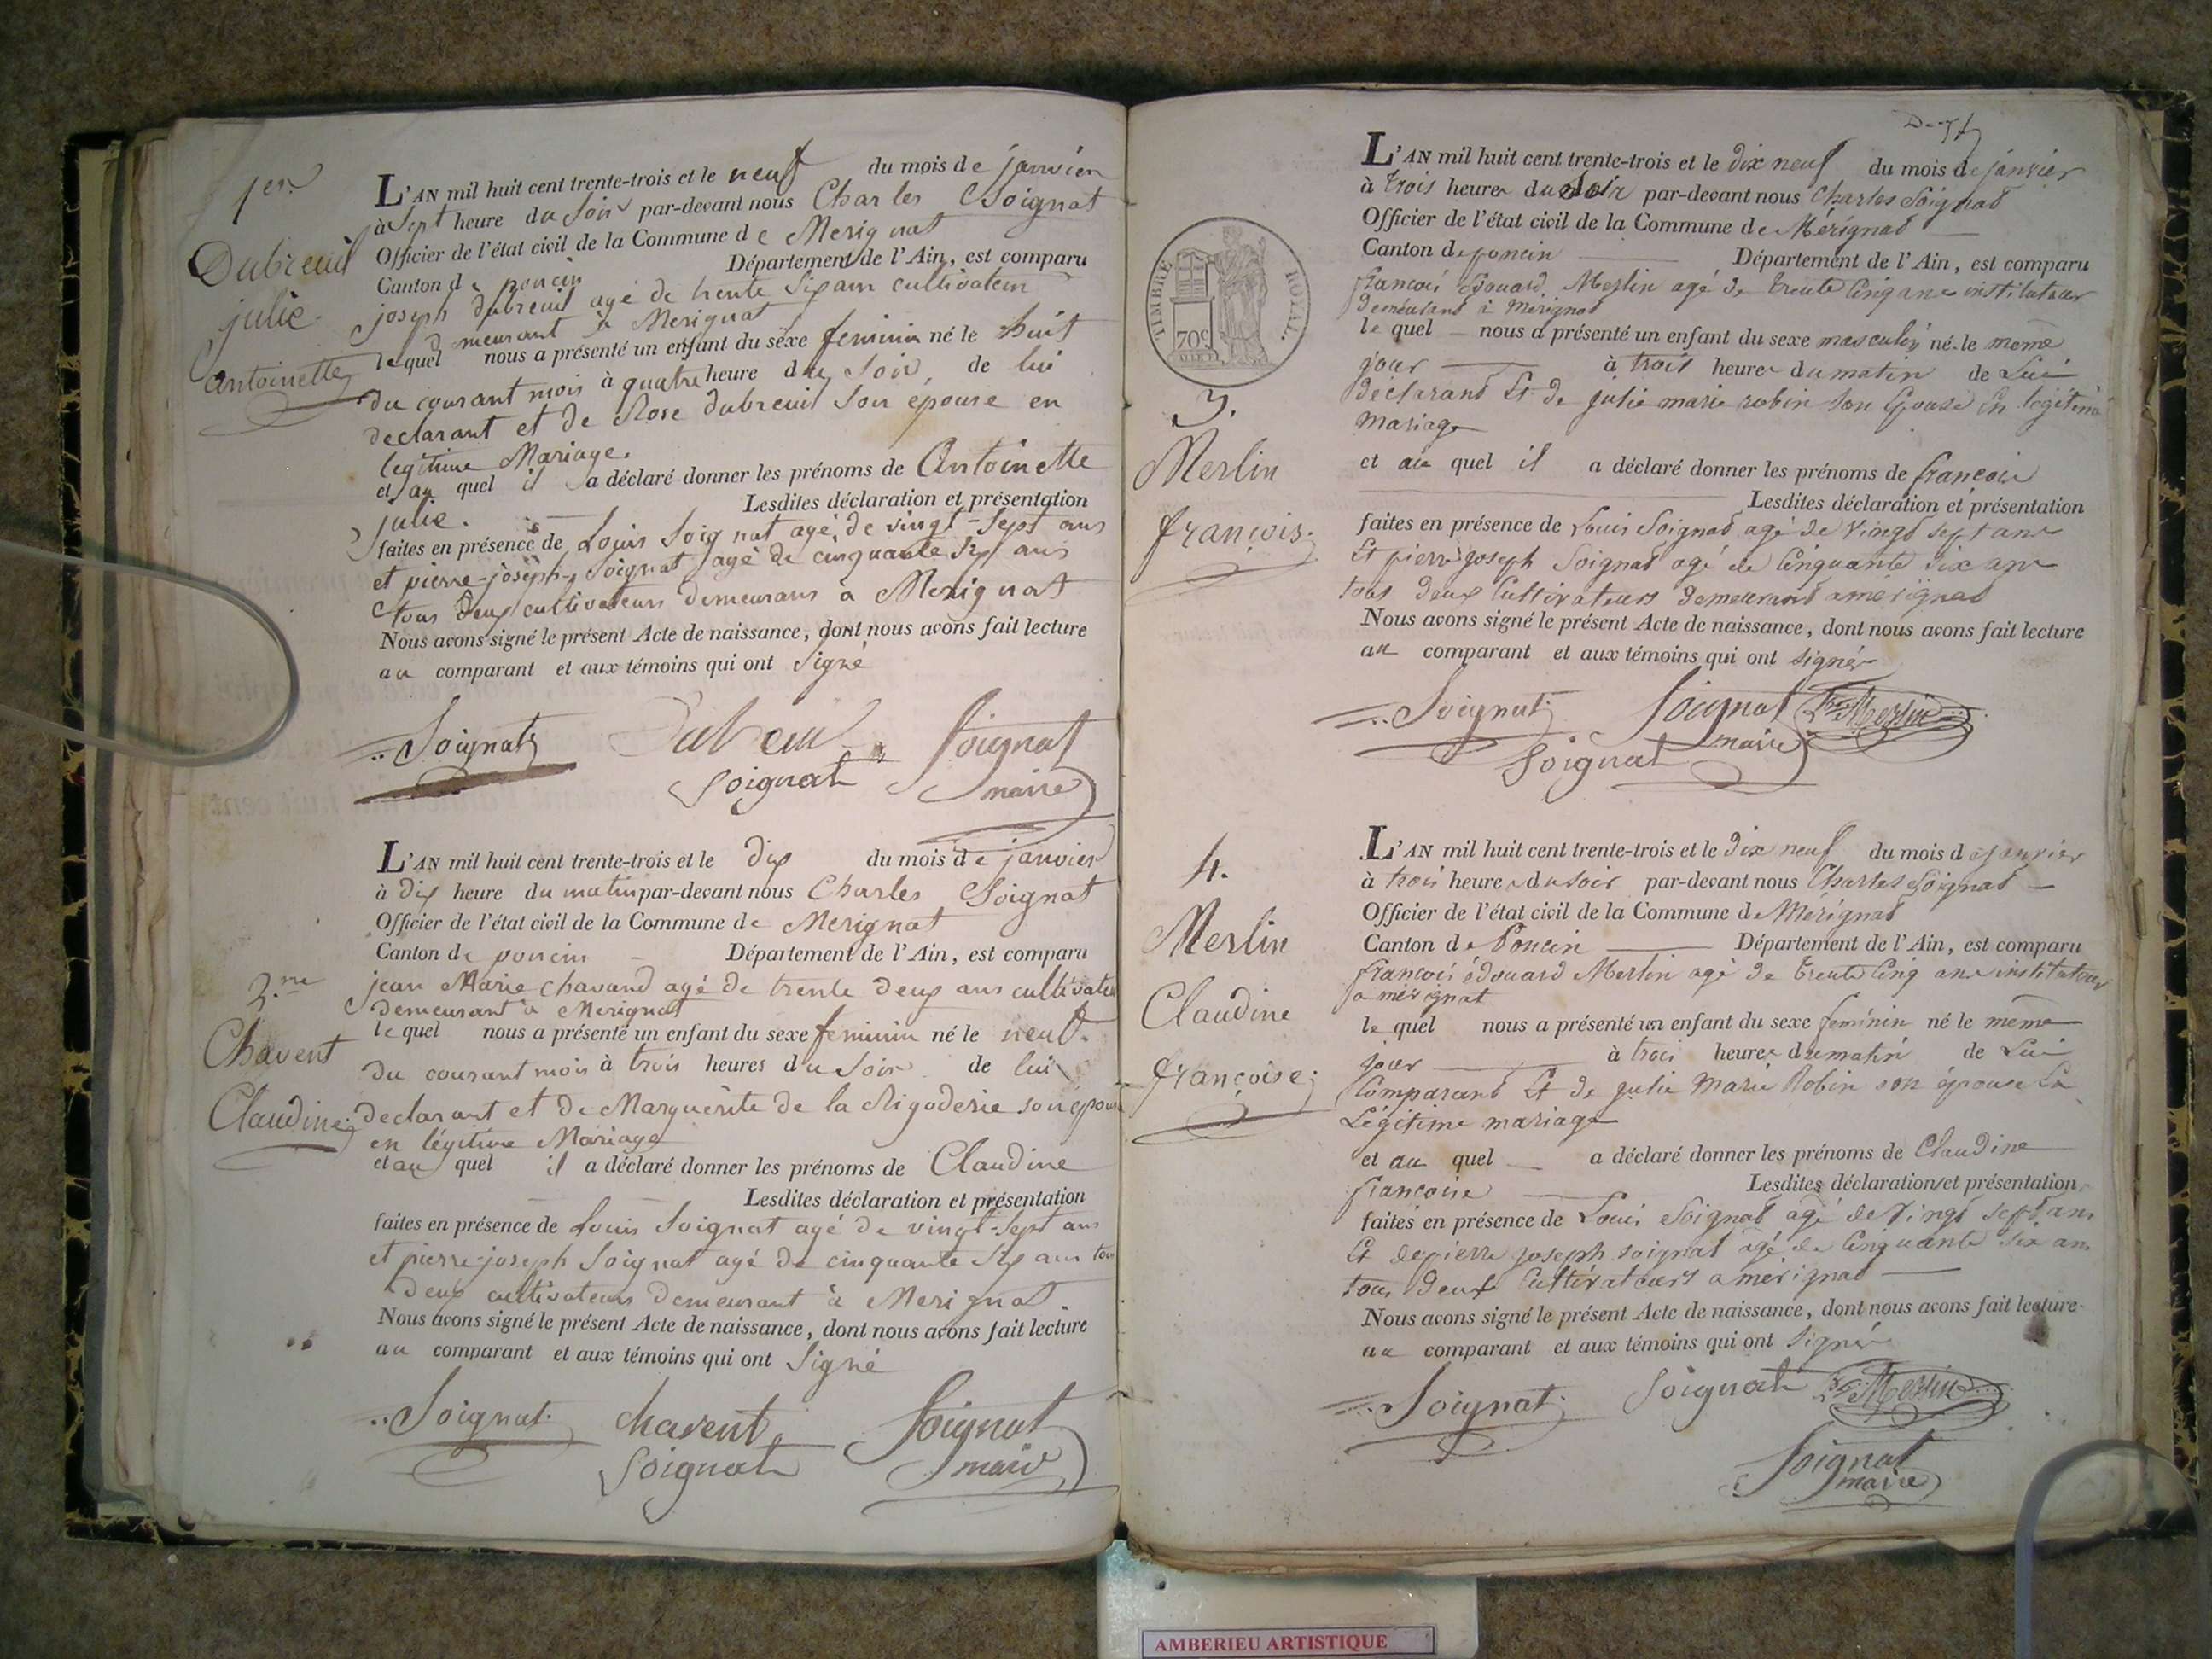 1er
Dubreuil
julie
antoinette
L'AN mil huit cent trente-trois et le neuf du mois de janvier
à Sept heure du Soir par-devant nous Charles Soignat
Officier de l'état civil de la Commune de Merignat
Canton de poncin Département de l'Ain, est comparu
joseph dubreuil agé de trente Six ans cultivateur
demeurant à Merignat
lequel nous a présenté un enfant du sexe feminin né le huit
du courant mois à quatre heure du Soir de lui
declarant et de Rose dubreuil Son épouse en
legitime Mariage.
et au quel il a déclaré donner les prénoms de Antoinette
julie. Lesdites déclaration et présentation
faites en présence de Louis Soignat agé de vingt-Sept ans
et pierre-joseph Soignat agé de cinquante Six ans
tous deux cultivateurs demeurans a Merignat
Nous avons signé le présent Acte de naissance, dont nous avons fait lecture
au comparant et aux témoins qui ont Signé
Soignat Dubreuil Soignat
Soignat maire
2.me
Chavent
Claudine
L'AN mil huit cent trente-trois et le dix du mois de janvier
à dix heure du matin par-devant nous Charles Soignat
Officier de l'état civil de la Commune de Merignat
Canton de poncin Département de l'Ain, est comparu
jean Marie chavand agé de trente deux ans cultivateur
demeurant à Merignat
lequel nous a présenté un enfant du sexe feminin né le neuf.
du courant mois à trois heures du Soir de lui
declarant et de Marguerite de la Rigoderie son épouse
en légitime Mariage
et au quel il a déclaré donner les prénoms de Claudine
Lesdites déclaration et présentation
faites en présence de Louis Soignat agé de vingt-Sept ans
et pierre-joseph Soignat agé de cinquante Six ans tous
deux cultivateurs demeurant à Merignat.
Nous avons signé le présent Acte de naissance, dont nous avons fait lecture
au comparant et aux témoins qui ont Signé
Soignat chavent Soignat
Soignat maire
TIMBRE ROYAL.
70c
3.
Merlin
françois.
L'AN mil huit cent trente-trois et le dix neuf du mois de janvier
à trois heures du Soir par-devant nous Charles Soignat
Officier de l'état civil de la Commune de Mérignat
Canton de poncin Département de l'Ain, est comparu
francois Edouard Merlin agé de trente Cinq ans instituteur
demeurant à Mérignat
le quel nous a présenté un enfant du sexe masculin né le même
jour à trois heures du matin de Lui
déclarant Et de julie marie robin Son Epouse En légitime
mariage
et au quel il a déclaré donner les prénoms de francois
Lesdites déclaration et présentation
faites en présence de Louis Soignat agé de Vingt Sept ans
Et pierre joseph Soignat agé de Cinquante Six ans
tous deux Cultivateurs demeurant a mérignat
Nous avons signé le présent Acte de naissance, dont nous avons fait lecture
au comparant et aux témoins qui ont signés
Soignat Soignat Merlin
Soignat maire
4.
Merlin
Claudine
françoise
L'AN mil huit cent trente-trois et le dix neuf du mois de janvier
à trois heures du soir par-devant nous Charles Soignat
Officier de l'état civil de la Commune de Mérignat
Canton de Poncin Département de l'Ain, est comparu
francois édouard Merlin agé de trente Cinq ans instituteur
a mérignat
le quel nous a présenté un enfant du sexe féminin né le même
jour à trois heures du matin de Lui
Comparant Et de julie Marie Robin son épouse En
Légitime mariage
et au quel a déclaré donner les prénoms de Claudine
francoise Lesdites déclaration et présentation
faites en présence de Louis Soignat agé de Vingt Sept ans
Et de pierre joseph soignat agé de Cinquante Six ans
tous deux Cultivateurs a mérignat
Nous avons signé le présent Acte de naissance, dont nous avons fait lecture
au comparant et aux témoins qui ont signés
Soignat Soignat Merlin
Soignat
maire
AMBERIEU ARTISTIQUE